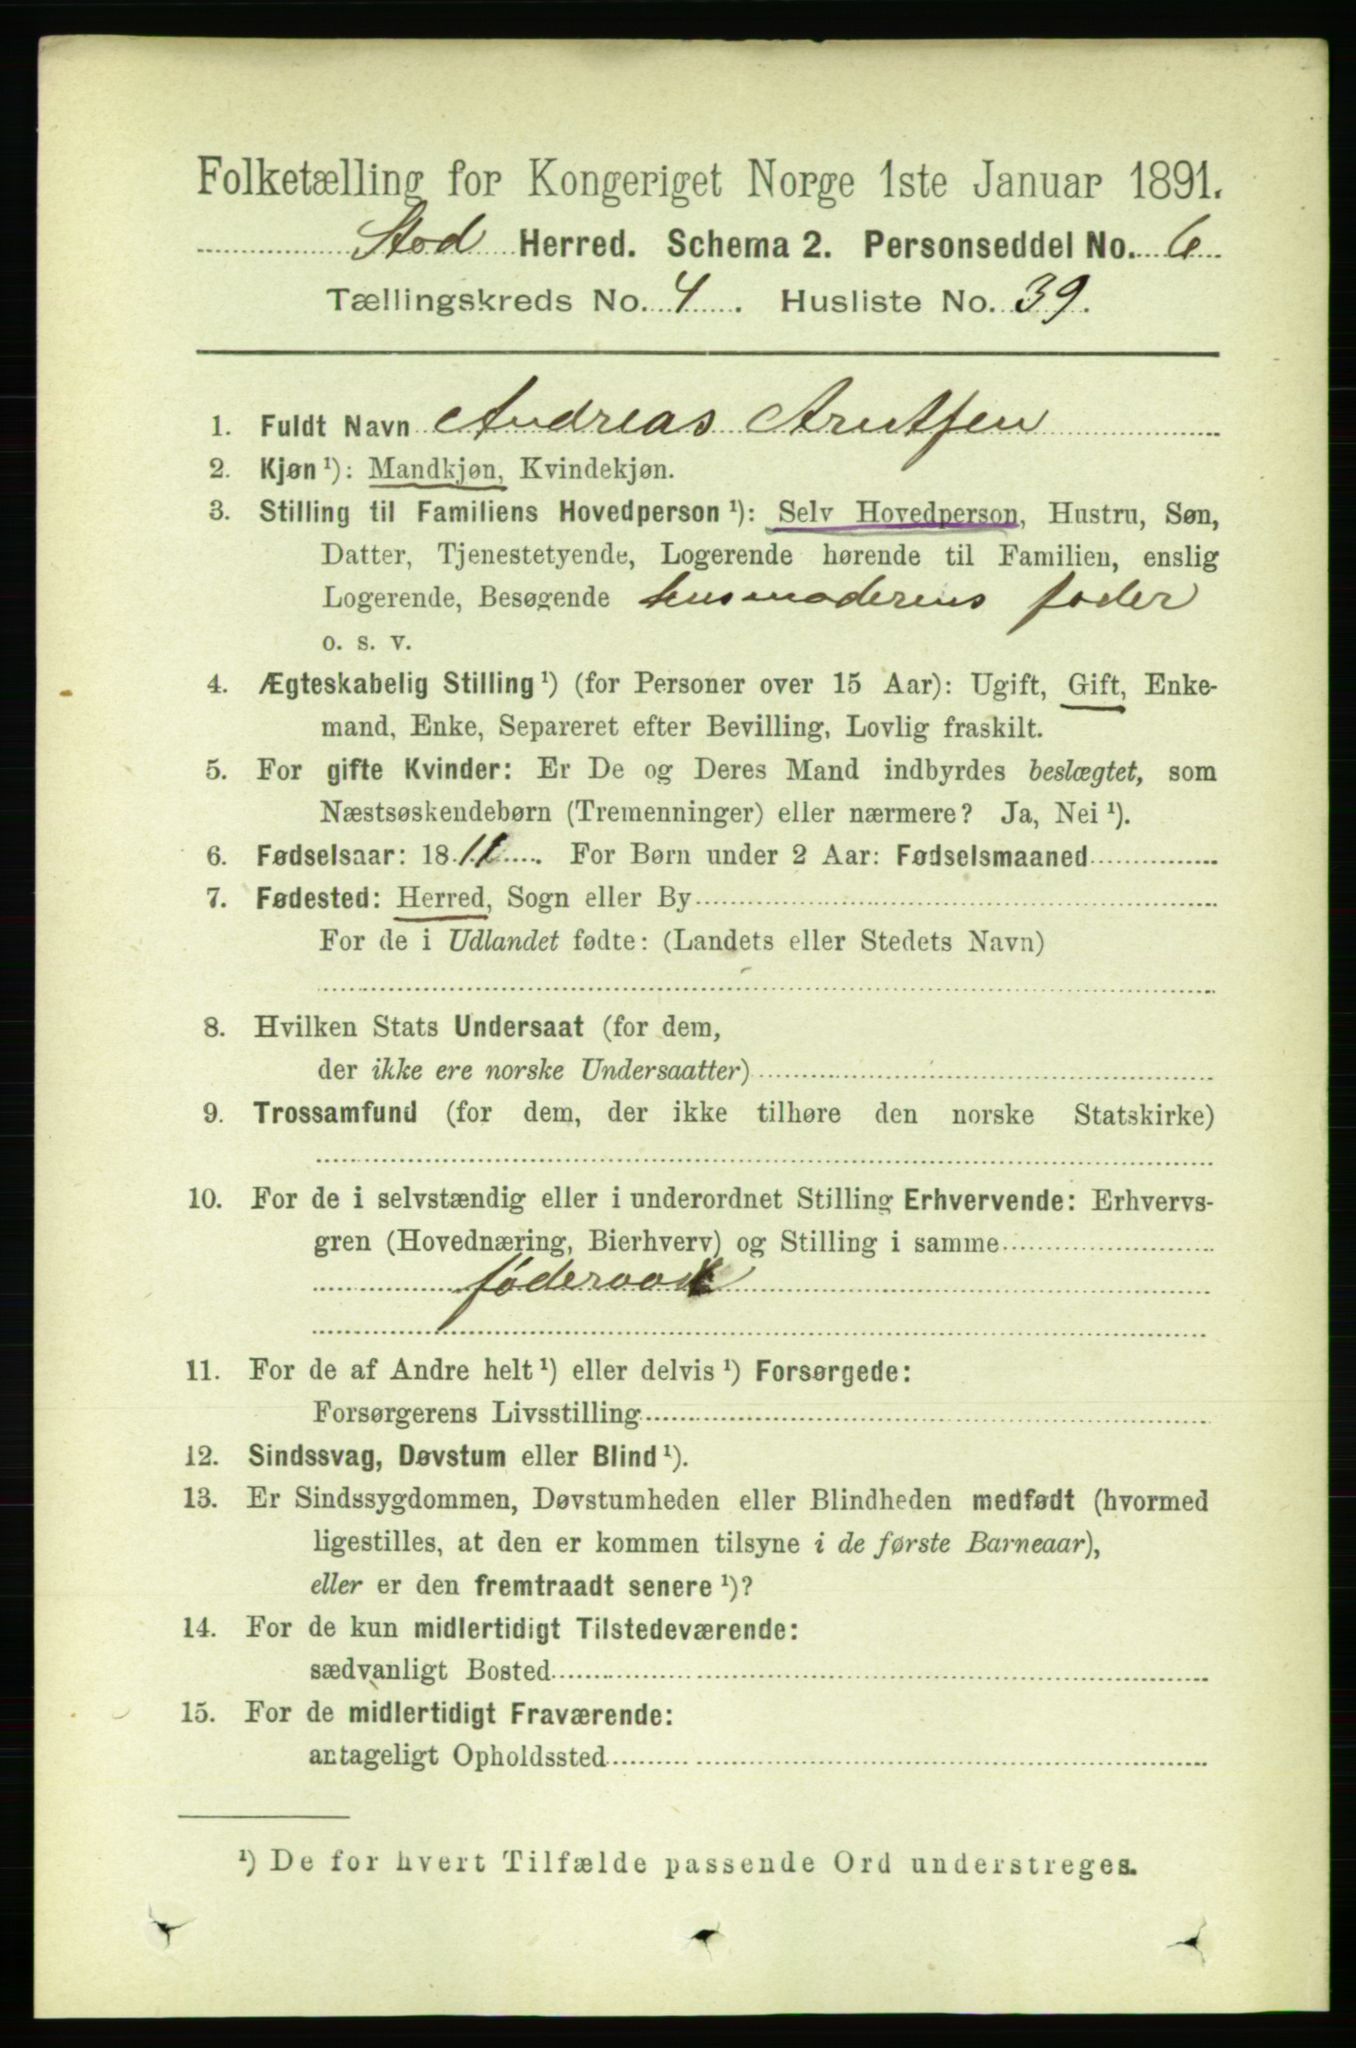 Folketælling for Kongeriget Norge 1ste Januar 1891.
Stod Herred. Schema 2. Personseddel No. 6
Tællingskreds No. 4. Husliste No. 39.
1. Fuldt Navn Andreas Arntsen
2. Kjøn ¹): Mandkjøn, Kvindekjøn.
3. Stilling til Familiens Hovedperson ¹): Selv Hovedperson, Hustru, Søn,
Datter, Tjenestetyende, Logerende hørende til Familien, enslig
Logerende, Besøgende husmoderens fader
o. s. v.
4. Ægteskabelig Stilling ¹) (for Personer over 15 Aar): Ugift, Gift, Enke-
mand, Enke, Separeret efter Bevilling, Lovlig fraskilt.
5. For gifte Kvinder: Er De og Deres Mand indbyrdes beslægtet, som
Næstsøskendebørn (Tremenninger) eller nærmere? Ja, Nei ¹).
6. Fødselsaar: 18 For Børn under 2 Aar: Fødselsmaaned
7. Fødested: Herred, Sogn eller By
For de i Udlandet fødte: (Landets eller Stedets Navn)
8. Hvilken Stats Undersaat (for dem,
der ikke ere norske Undersaatter)
9. Trossamfund (for dem, der ikke tilhøre den norske Statskirke)
10. For de i selvstændig eller i underordnet Stilling Erhvervende: Erhvervs-
gren (Hovednæring, Bierhverv) og Stilling i samme
føderaad
11. For de af Andre helt ¹) eller delvis ¹) Forsørgede:
Forsørgerens Livsstilling
12. Sindssvag, Døvstum eller Blind ¹).
13. Er Sindssygdommen, Døvstumheden eller Blindheden medfødt (hvormed
ligestilles, at den er kommen tilsyne i de første Barneaar),
eller er den fremtraadt senere ¹)?
14. For de kun midlertidigt Tilstedeværende:
sædvanligt Bosted
15. For de midlertidigt Fraværende:
antageligt Opholdssted
¹) De for hvert Tilfælde passende Ord understreges.